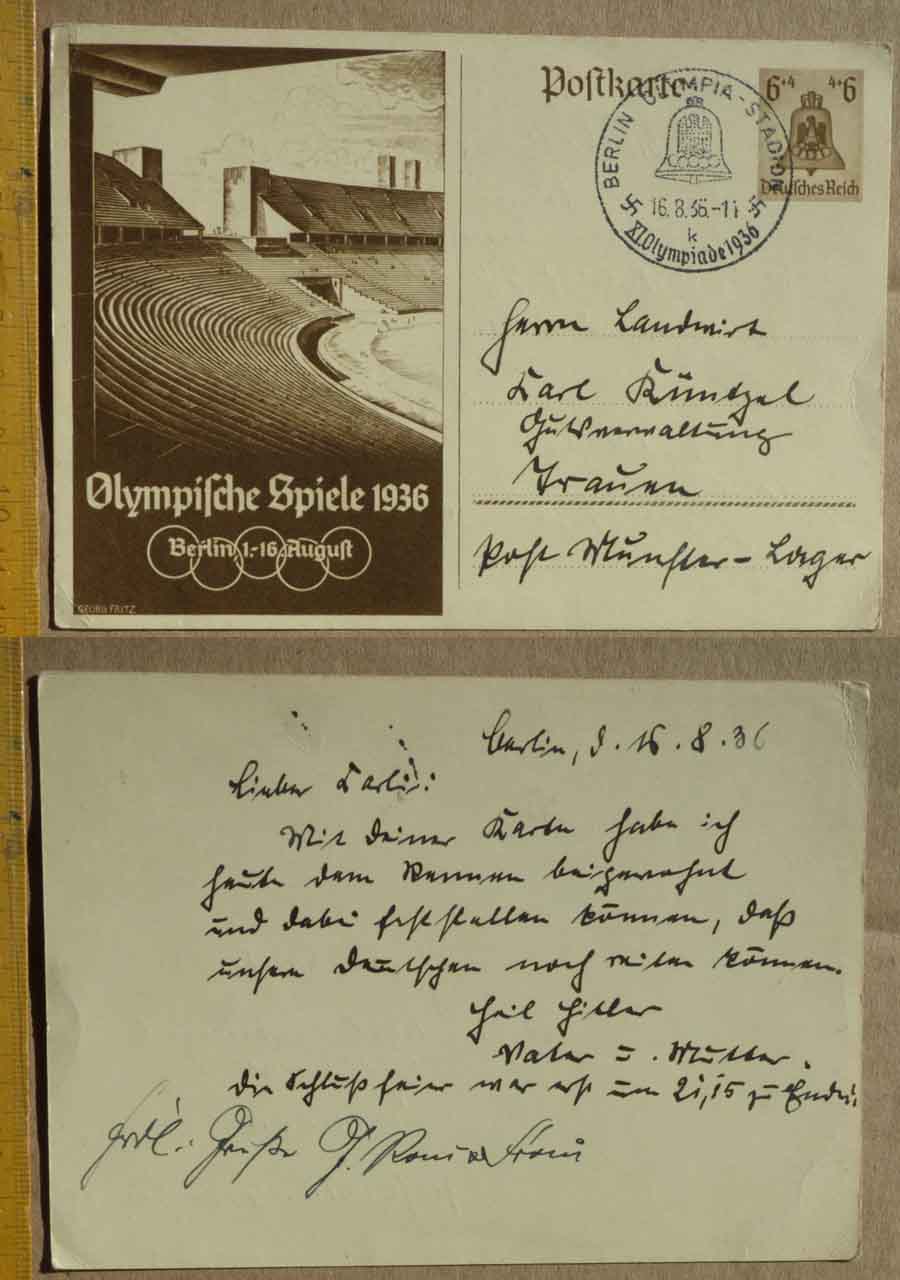 Postkarte
6+4 4+6
Deutsches Reich
BERLIN OLYMPIA-STADION
16.8.36.-11
k
XI.Olympiade1936
Olympische Spiele 1936
Berlin, 1.-16. August
GEORG FRITZ
Herrn Landwirt
Karl Küntzel
Gutsverwaltung
Trauen
Post Munster-Lager
Berlin, d. 16.8.36
Lieber Karli!:
Mit deiner Karte habe ich
heute dem Rennen beigewohnt
und dabei feststellen können, daß
unsere Deutschen noch reiten können.
Heil Hitler
Vater u. Mutter.
Die Schlußfeier war erst um 21,15 zu Ende.
Frdl. Grüße Frau